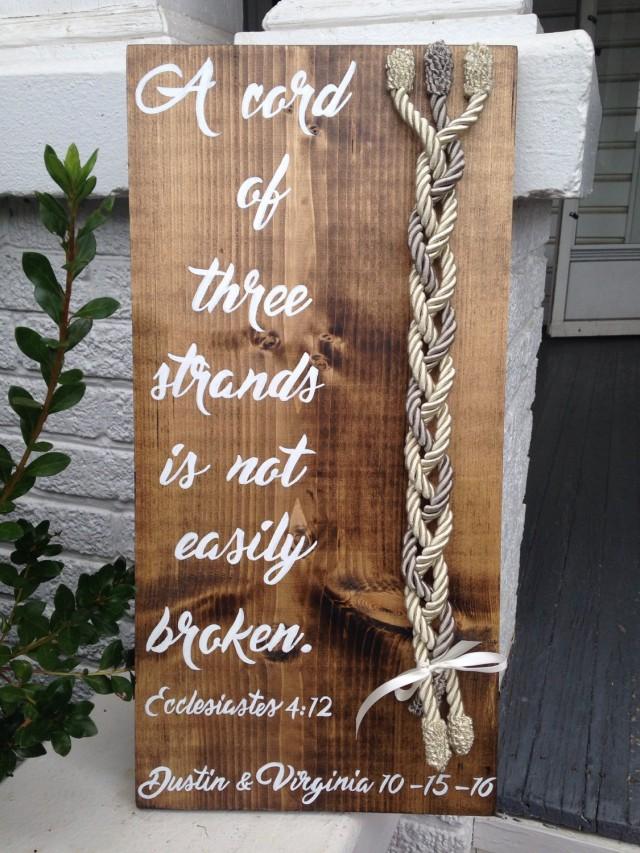 A cord
of
three
strands
is not
easily
broken.
Ecclesiastes 4:12
Dustin & Virginia 10-15-16